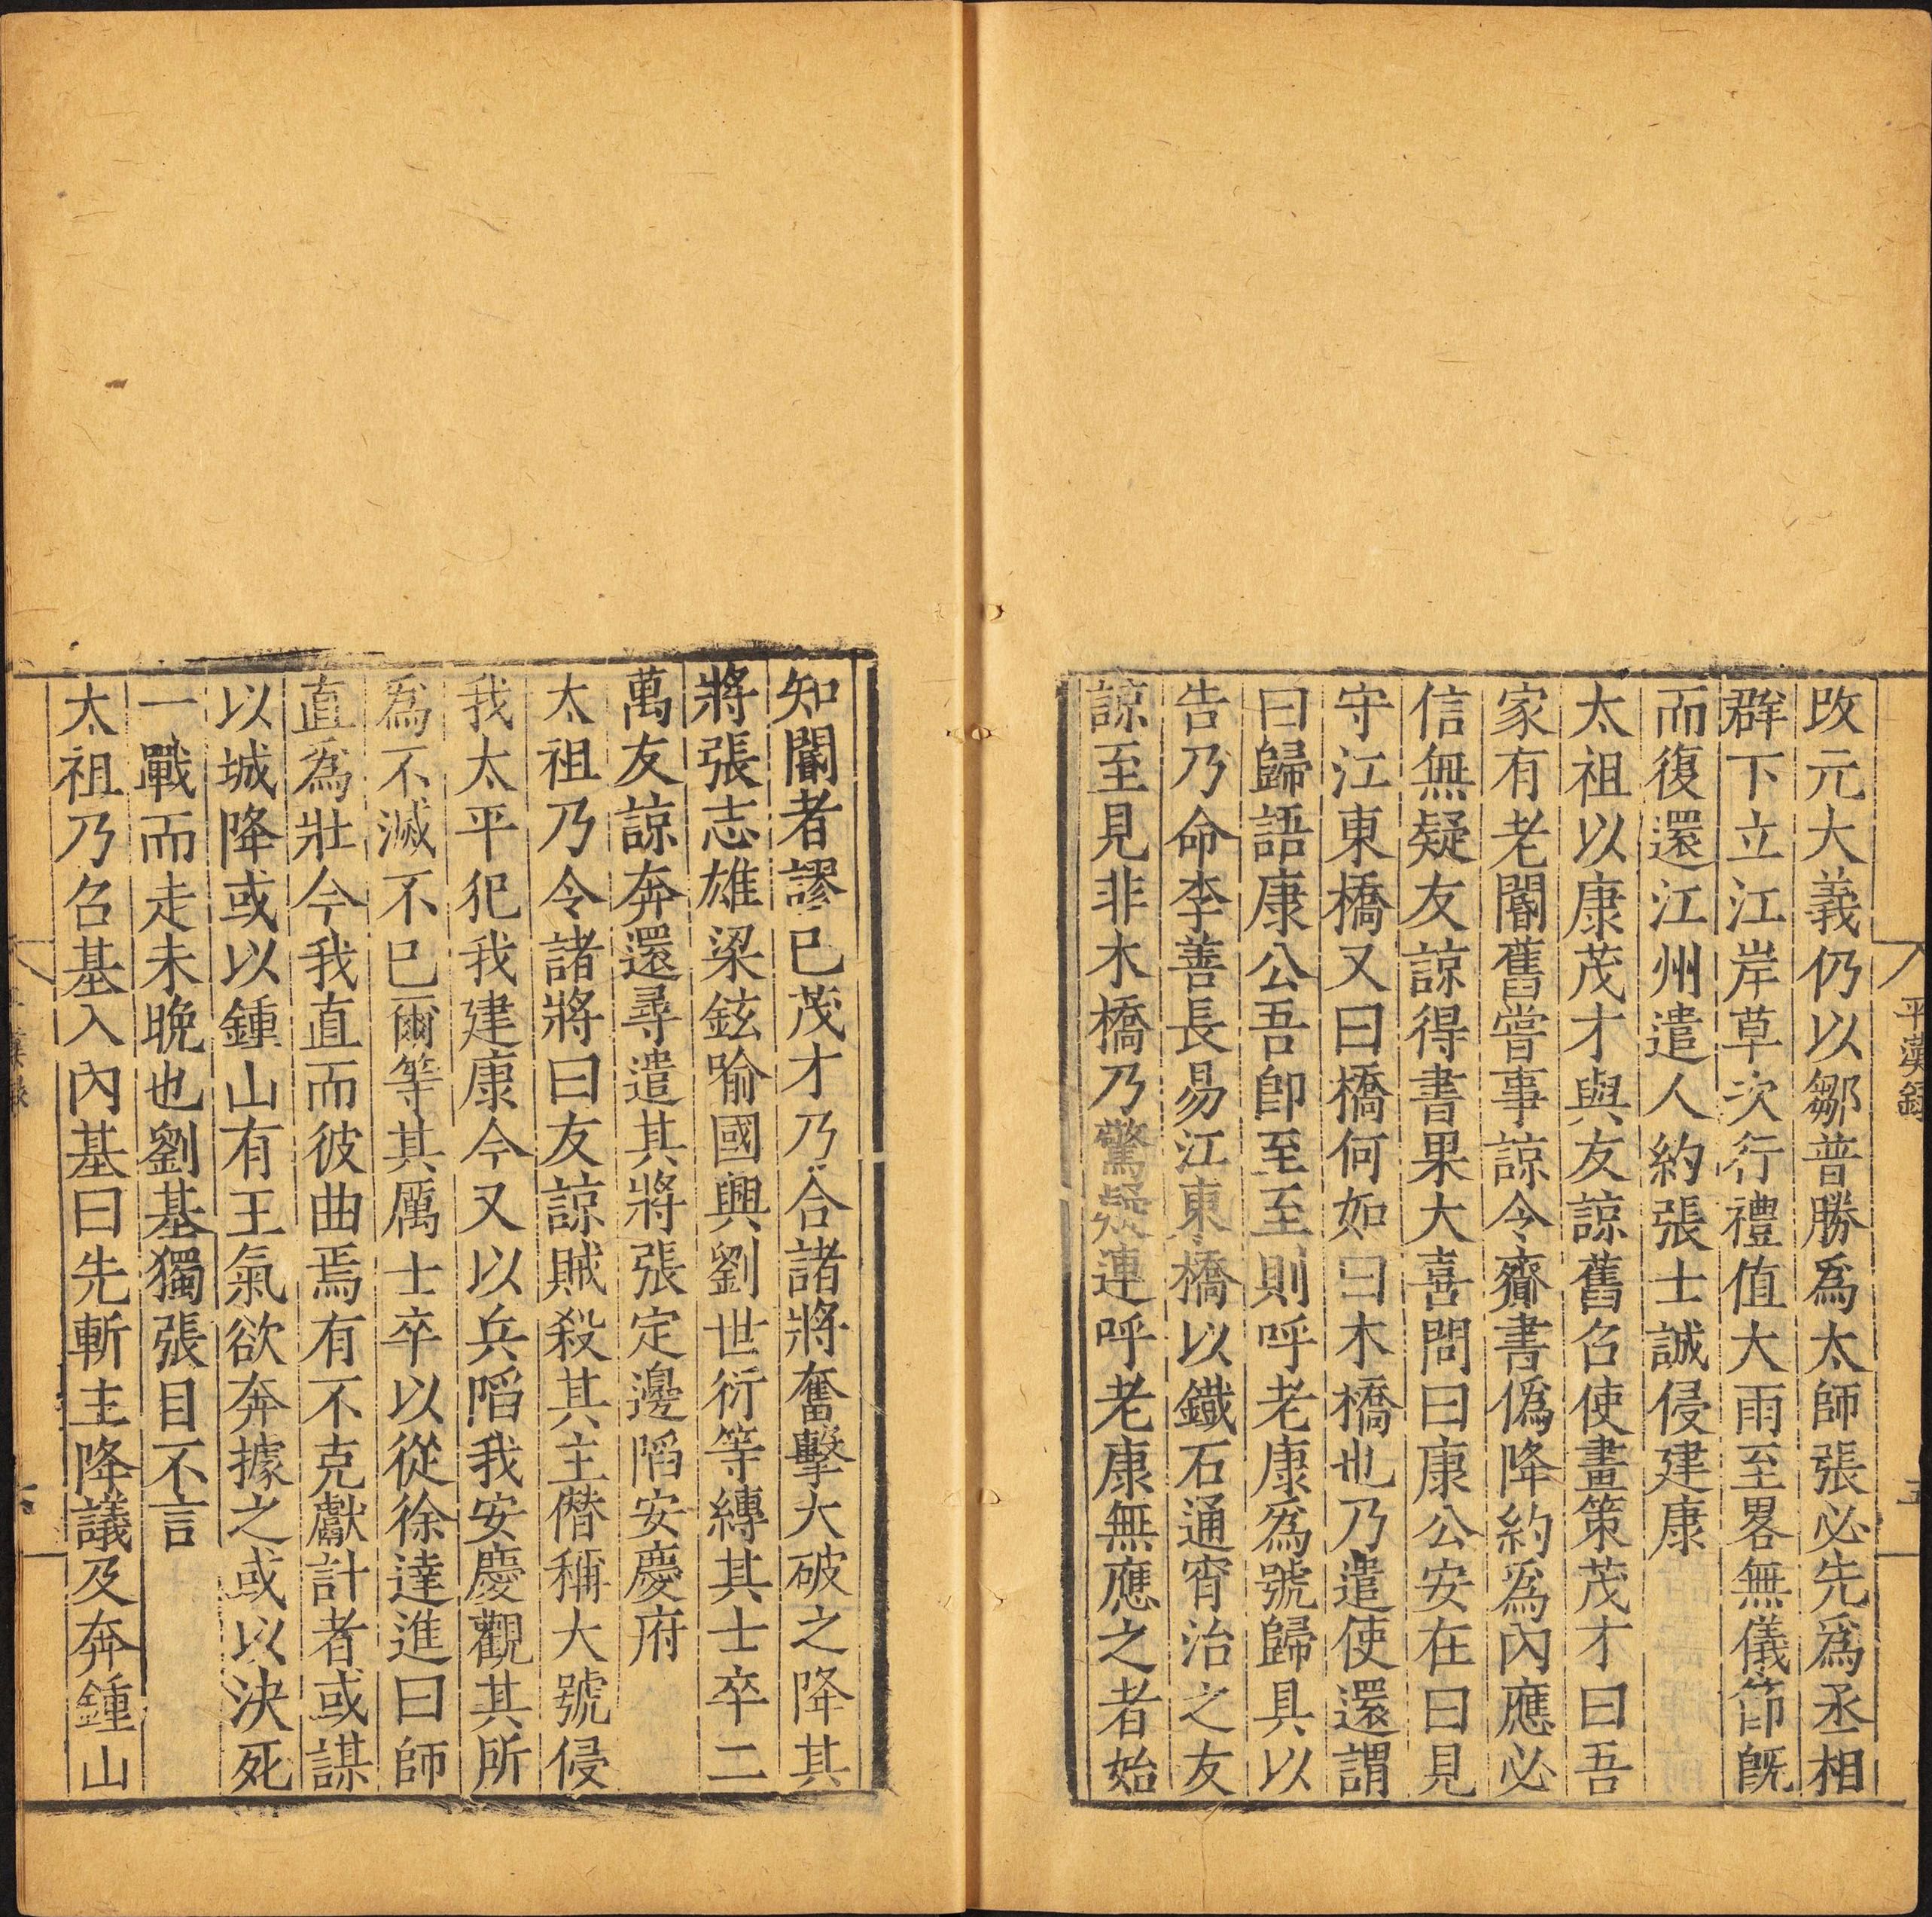 平漢錄
五
改元大義仍以鄒普勝爲太師張必先爲丞相
群下立江岸草次行禮值大雨至畧無儀節旣
而復還江州遣人約張士誠侵建康
太祖以康茂才與友諒舊召使畫策茂才曰吾
家有老閽舊嘗事諒令齎書僞降約爲內應必
信無疑友諒得書果大喜問曰康公安在曰見
守江東橋又曰橋何如曰木橋也乃遣使還謂
曰歸語康公吾卽至至則呼老康爲號歸具以
告乃命李善長易江東橋以鐵石通宵治之友
諒至見非木橋乃驚疑連呼老康無應之者始
知閽者謬已茂才乃合諸將奮擊大破之降其
將張志雄梁鉉喻國興劉世衍等縛其士卒二
萬友諒奔還尋遣其將張定邊陷安慶府
太祖乃令諸將曰友諒賊殺其主僭稱大號侵
我太平犯我建康今又以兵陷我安慶觀其所
爲不滅不已爾等其厲士卒以從徐達進曰師
直爲壯今我直而彼曲焉有不克獻計者或謀
以城降或以鍾山有王氣欲奔據之或以決死
一戰而走未晚也劉基獨張目不言
太祖乃召基入內基曰先斬主降議及奔鍾山